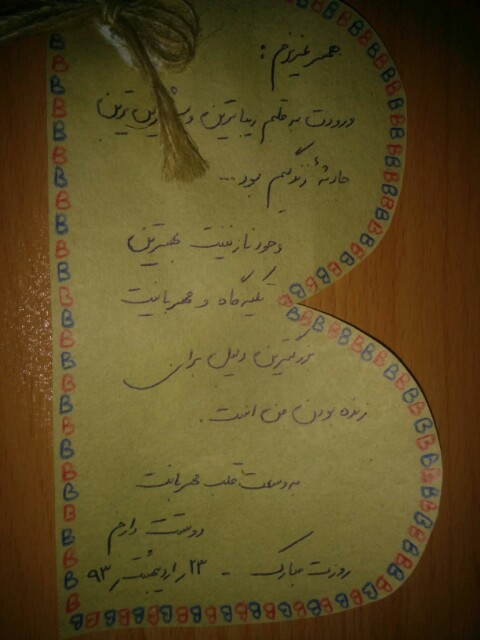 همسر عزیزم :
ورودت به قلبم زیباترین و شیرین ترین
حادثهٔ زندگیم بود ...
وجود نازنینت عجیبترین
تکیه گاه و مهربانیت
بزرگترین دلیل برای
زنده بودن من است .
به وسعت قلب مهربانت
دوستت دارم
روزت مبارک - ۲۳ / اردیبهشت / ۹۳